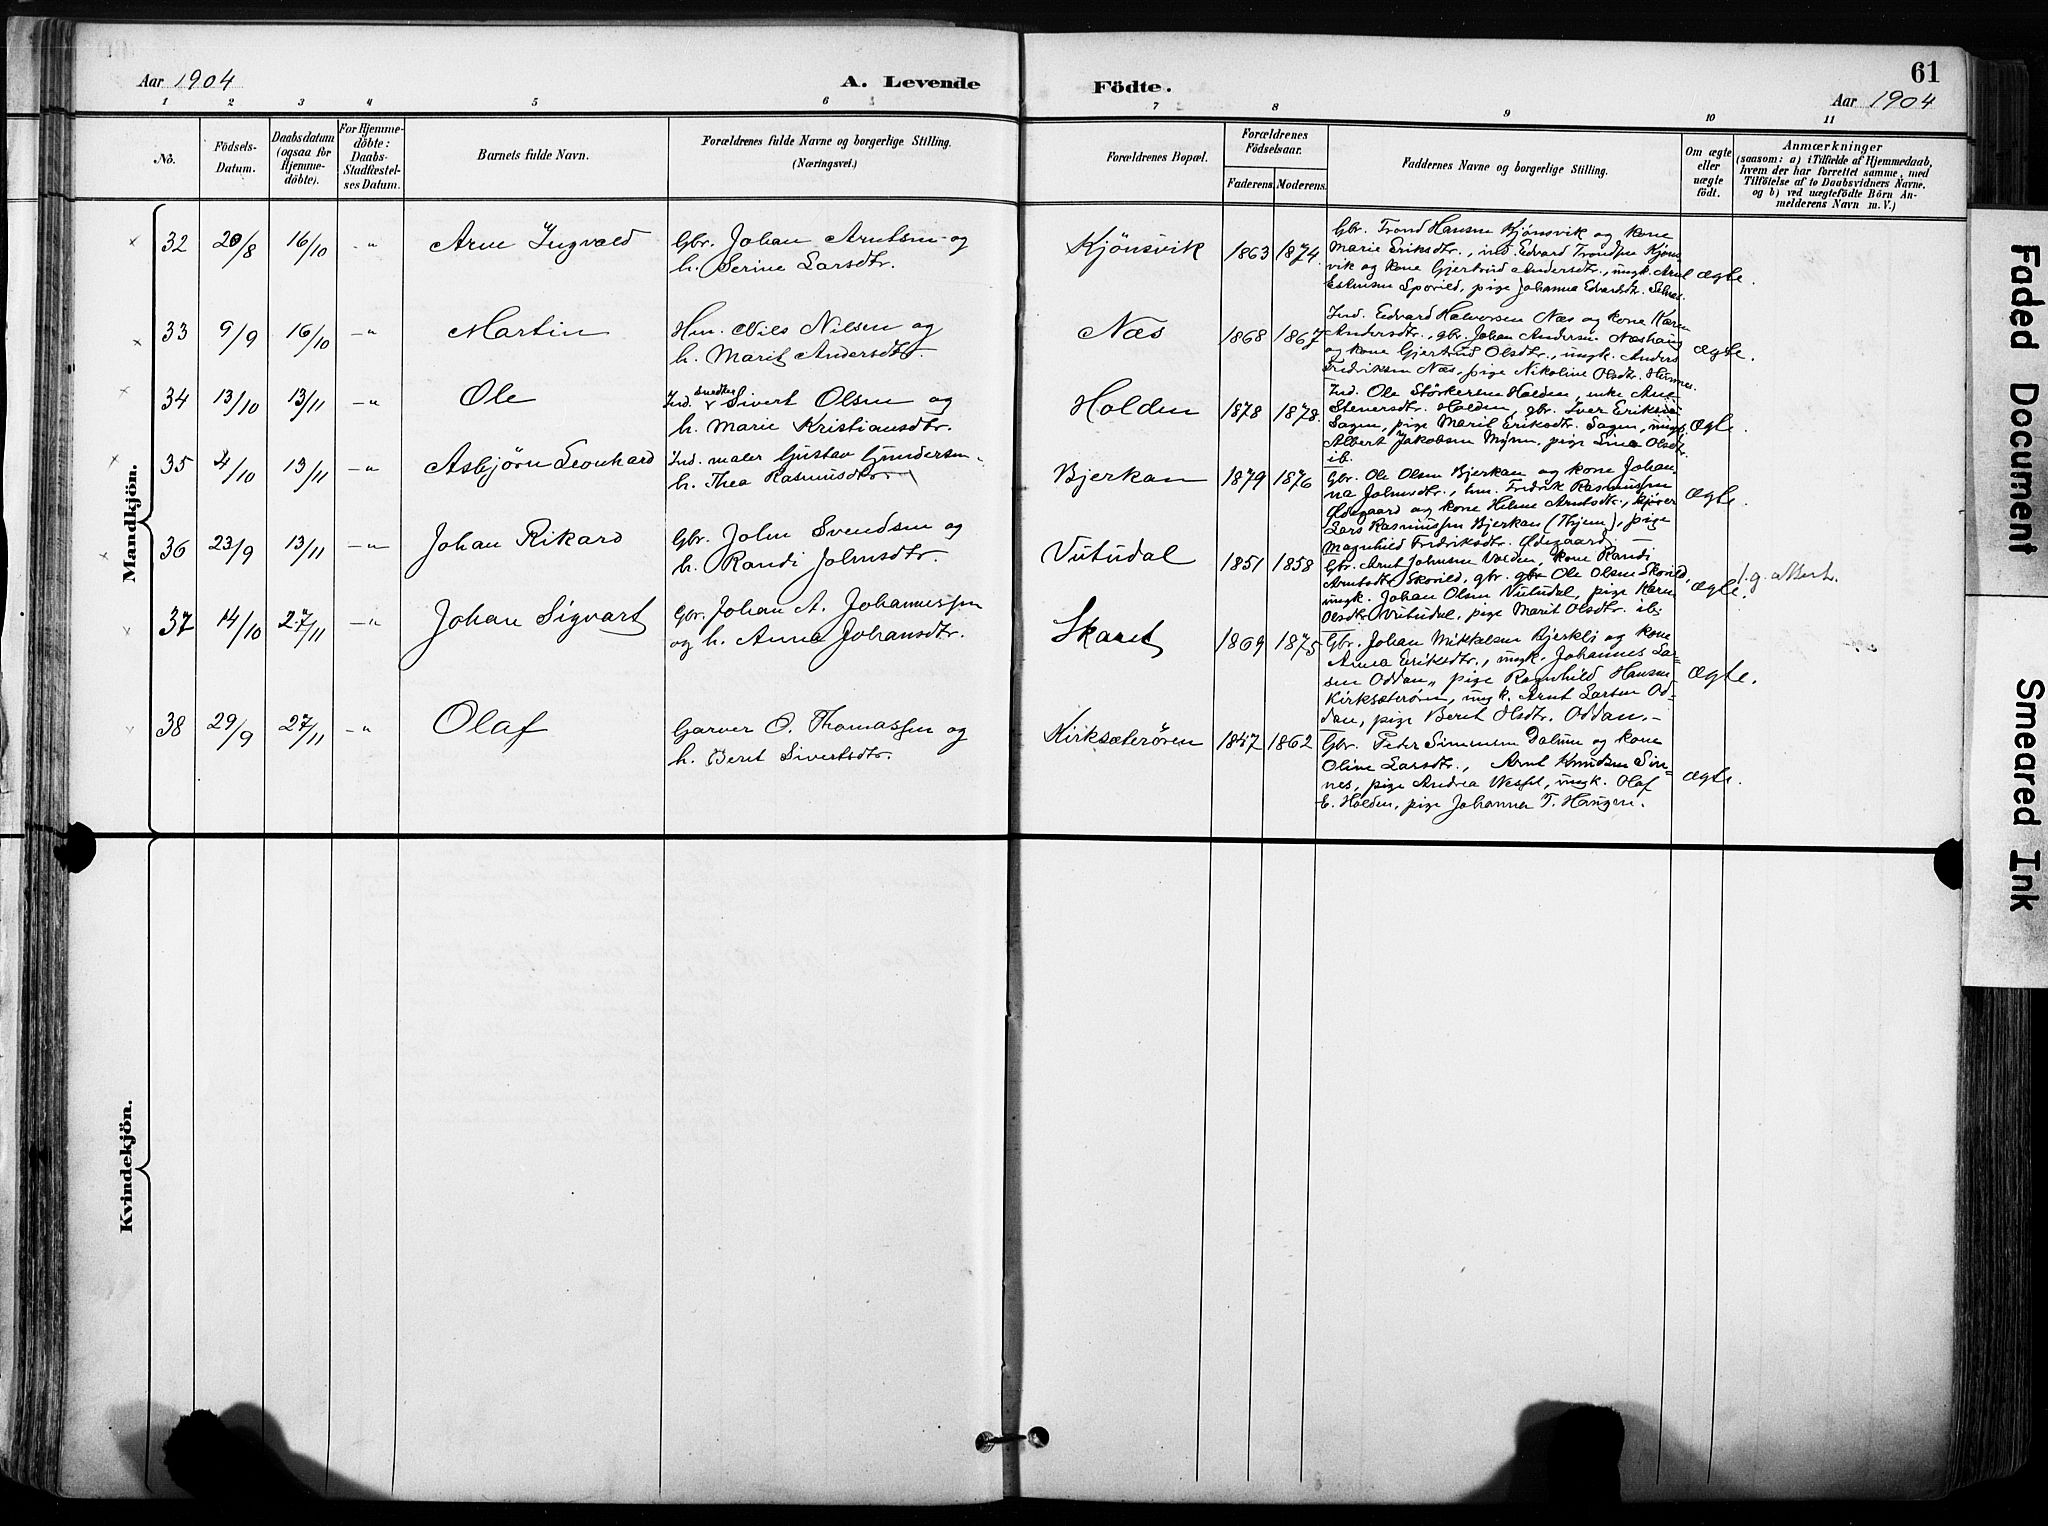 Aar 1904
A. Levende
Födte.
61
Aar 1904
1 2 3 4 5 6 7 8 9 10 11
No.
Födsels-
Datum.
Daabsdatum
(ogsaa for
Hjemme-
döbte).
For Hjemme-
döbte:
Daabs-
Stadfæstel-
ses Datum.
Barnets fulde Navn.
Forældrenes fulde Navne og borgerlige Stilling.
(Næringsvei.)
Forældrenes Bopæl.
Forældrenes
Födselsaar.
Faderens. Moderens.
Faddernes Navne og borgerlige Stilling.
Om ægte
eller
uægte
födt.
Anmærkninger
(saasom: a) i Tilfælde af Hjemmedaab,
hvem der har forrettet samme, med
Tilföielse af to Daabsvidners Navne.
og b) ved uægtefödte Börn An-
melderens Navn m. V.)
Mandkjön.
32 20/8 16/10 -"- Arne Ingvald
Gbr. Johan Arntsen og
h. Serine Larsdtr.
Kjönsvik 1863 1874
Gbr. Trond Hansen Kjönsvik og kone
Marie Eriksdtr., ind. Edvard Trondsen Kjöns
vik og kone Gjertrud Andersdtr., ungk. Arnt
Estensen Sporild, pige Johanna Edvardsdtr.
ægte.
33 9/9 16/10 -"- Martin
Hm. Nils Nilsen og
h. Marit Andersdtr.
Næs 1868 1867
Ind. Edvard Halvorsen Næs og kone Karen
Andersdtr., gbr. Johan Andersen Næshaug
og kone Gjertrud Olsdtr., ungk. Anders
Fredriksen Næs, pige Nikoline Olsdtr. Hemnes.
ægte.
34 13/10 13/11 -"- Ole
Ind. snedker Sivert Olsen og
h. Marie Kristiansdtr.
Holden 1878 1878
Ind. Ole Störkersen Holden, enke Ane
Stenersdtr. Holden, gbr. Iver Eriksen
Sagen, pige Marit Eriksdtr. Sagen, ungk.
Albert Jakobsen Myren, pige Sina Olsdtr.
ib.
ægte.
35 4/10 13/11 -"- Asbjörn Leonhard
Ind. maler Gustav Gundersen
h. Thea Rasmusdtr.
Bjerkan 1879 1876
Gbr. Ole Olsen Bjerkan og kone Johan
na Johnsdtr., hm. Fredrik Rasmussen
Ödegaard og kone Helene Arntsdtr., kjörer
Lars Rasmussen Bjerkan (Thjem), pige
Magnhild Fredriksdtr. Ödegaard.
ægte.
36 23/9 13/11 -"- Johan Rikard
Gbr. John Svendsen og
h. Randi Johnsdtr.
Vutudal 1851 1858
Gbr. Arnt Johnsen Volden, kone Randi
Arntsdtr. Skorild, gbr. gbr. Ole Olsen Skorild,
ungk. Johan Olsen Vutudal, pige Karen
Olsdtr. Vutudal, pige Marit Olsdtr. ib.
ægte.
37 14/10 27/11 -"- Johan Sigvart
Gbr. Johan A. Johannessen
og h. Anna Johansdtr.
Skaret 1869 1875
Gbr. Johan Mikkelsen Bjerkli og kone
Anna Eriksdtr., ungk. Johannes Lar-
sen Oddan, pige Ragnhild Hansen
Kirksæterören, ungk. Arnt Larsen Od-
dan, pige Berit Olsdtr. Oddan.
ægte.
38 29/9 27/11 -"- Olaf
Garver O. Thomassen og
h. Berit Sivertsdtr.
Kirksæterören 1847 1862
Gbr. Peder Simonsen Dalum og kone
Oline Larsdtr., Arnt Knudsen Sin-
nes, pige Andrea Wessel, ungk. Olaf
E. Holden, pige Johanna T. Haugen.
ægte.
Kvindekjön.
Faded Document
Smeared Ink